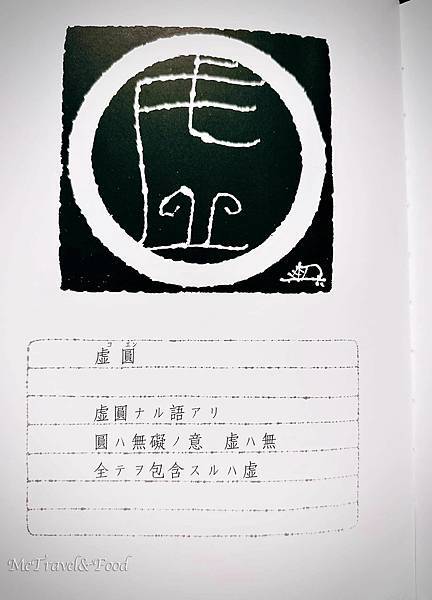 虚
コ エン
虚圓
虚圓ナル語アリ
圓ハ無礙ノ意 虚ハ無
全テヲ包含スルハ虚
McTravel&Food